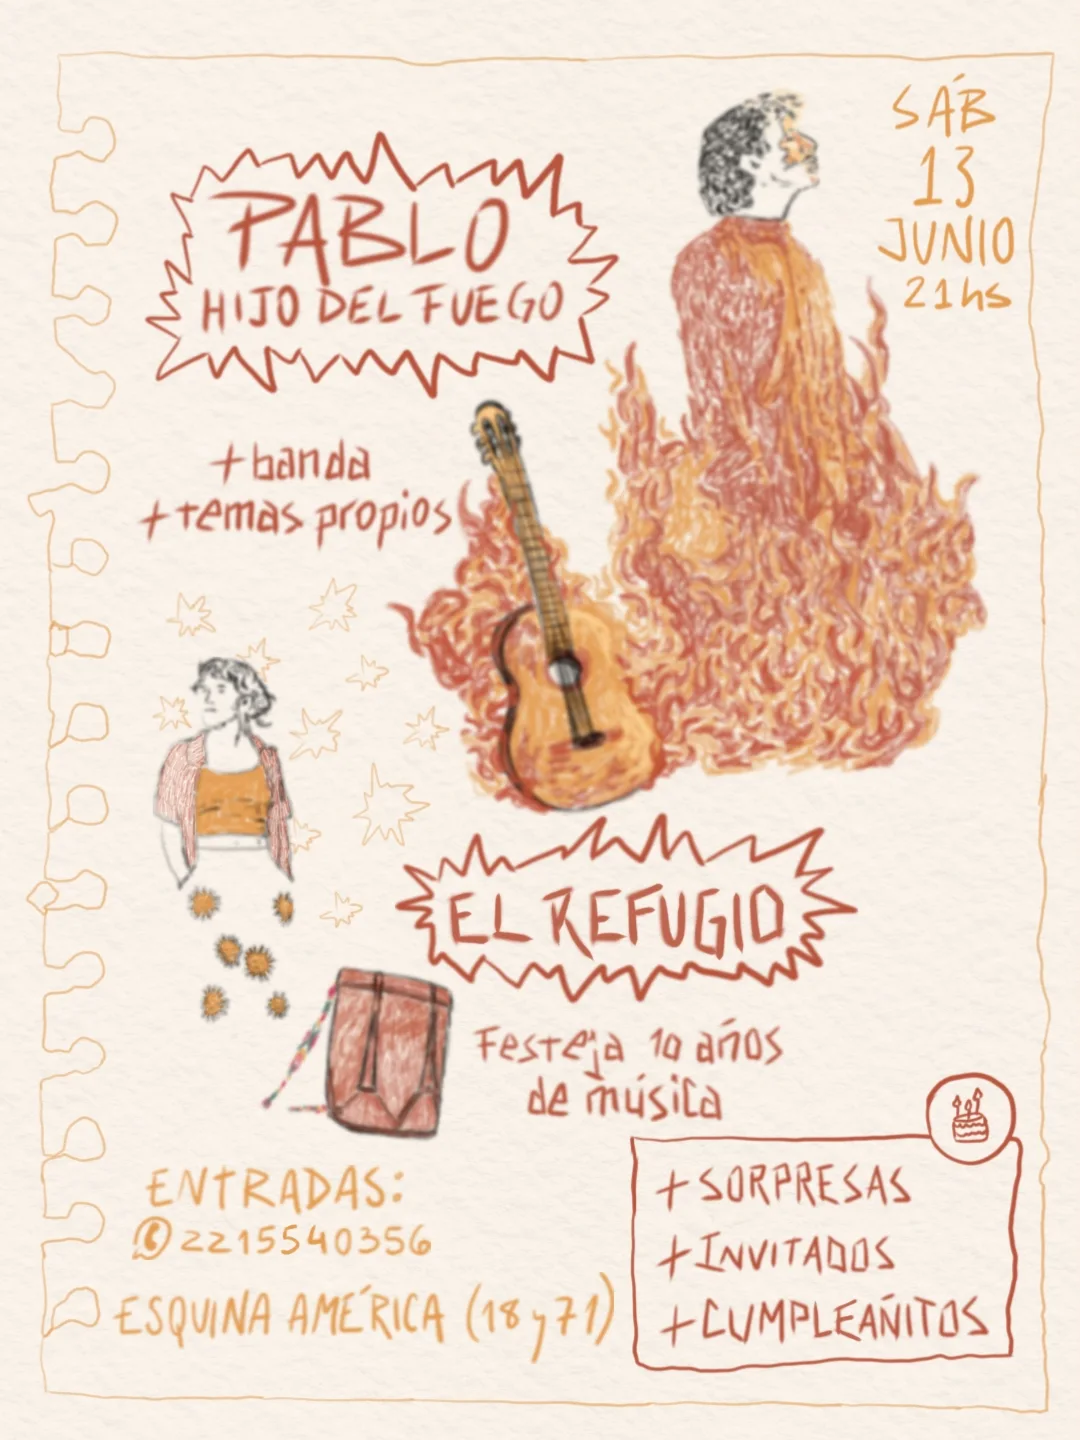 SÁB
13
JUNIO
21hs
PABLO
HIJO DEL FUEGO
+banda
+temas propios
EL REFUGIO
Festeja 10 años
de música
+SORPRESAS
+INVITADOS
+CUMPLEAÑITOS
ENTRADAS:
2215540356
ESQUINA AMÉRICA (18 y 71)